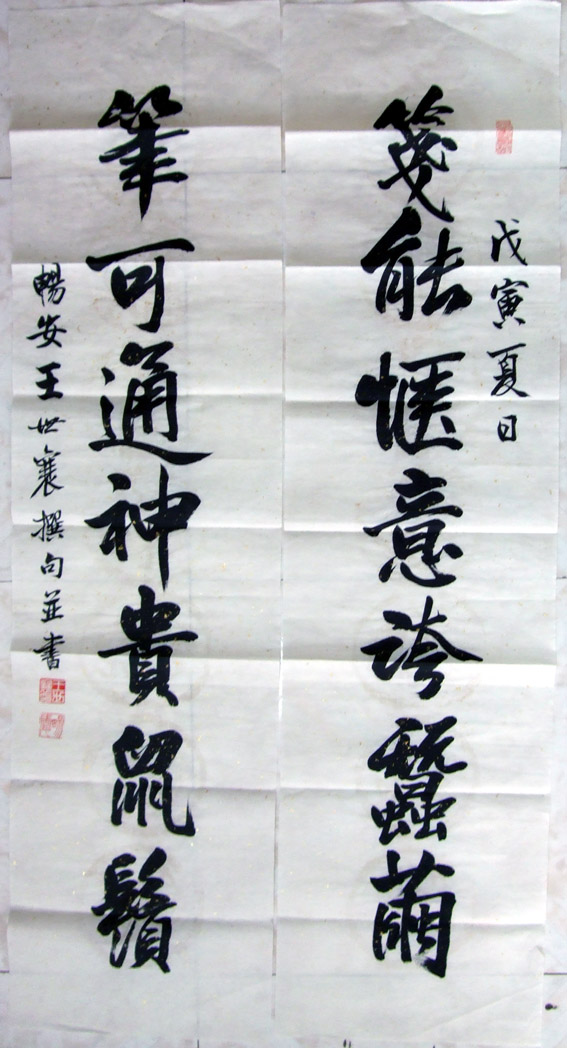 戊寅夏日
箋能愜意誇蠶繭
筆可通神貴鼠鬚
暢安王世襄撰句並書